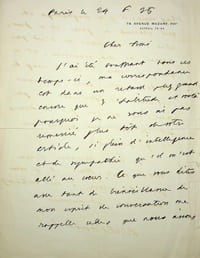 Paris le 24 6 25
78 AVENUE MOZART, XVIe
Cher Ami
J'ai été souffrant tous ces
temps-ci, ma correspondance
est dans un retard plus grand
encore que d'habitude et voilà
pourquoi je ne vous ai pas
remercié plus tôt de votre
article, si plein d'intelligence
et de sympathie qu'il m'est
allé au cœur. Ce que vous dites
avec tant de bienveillance de
mon esprit de conversation me
rappelle celles que nous avons